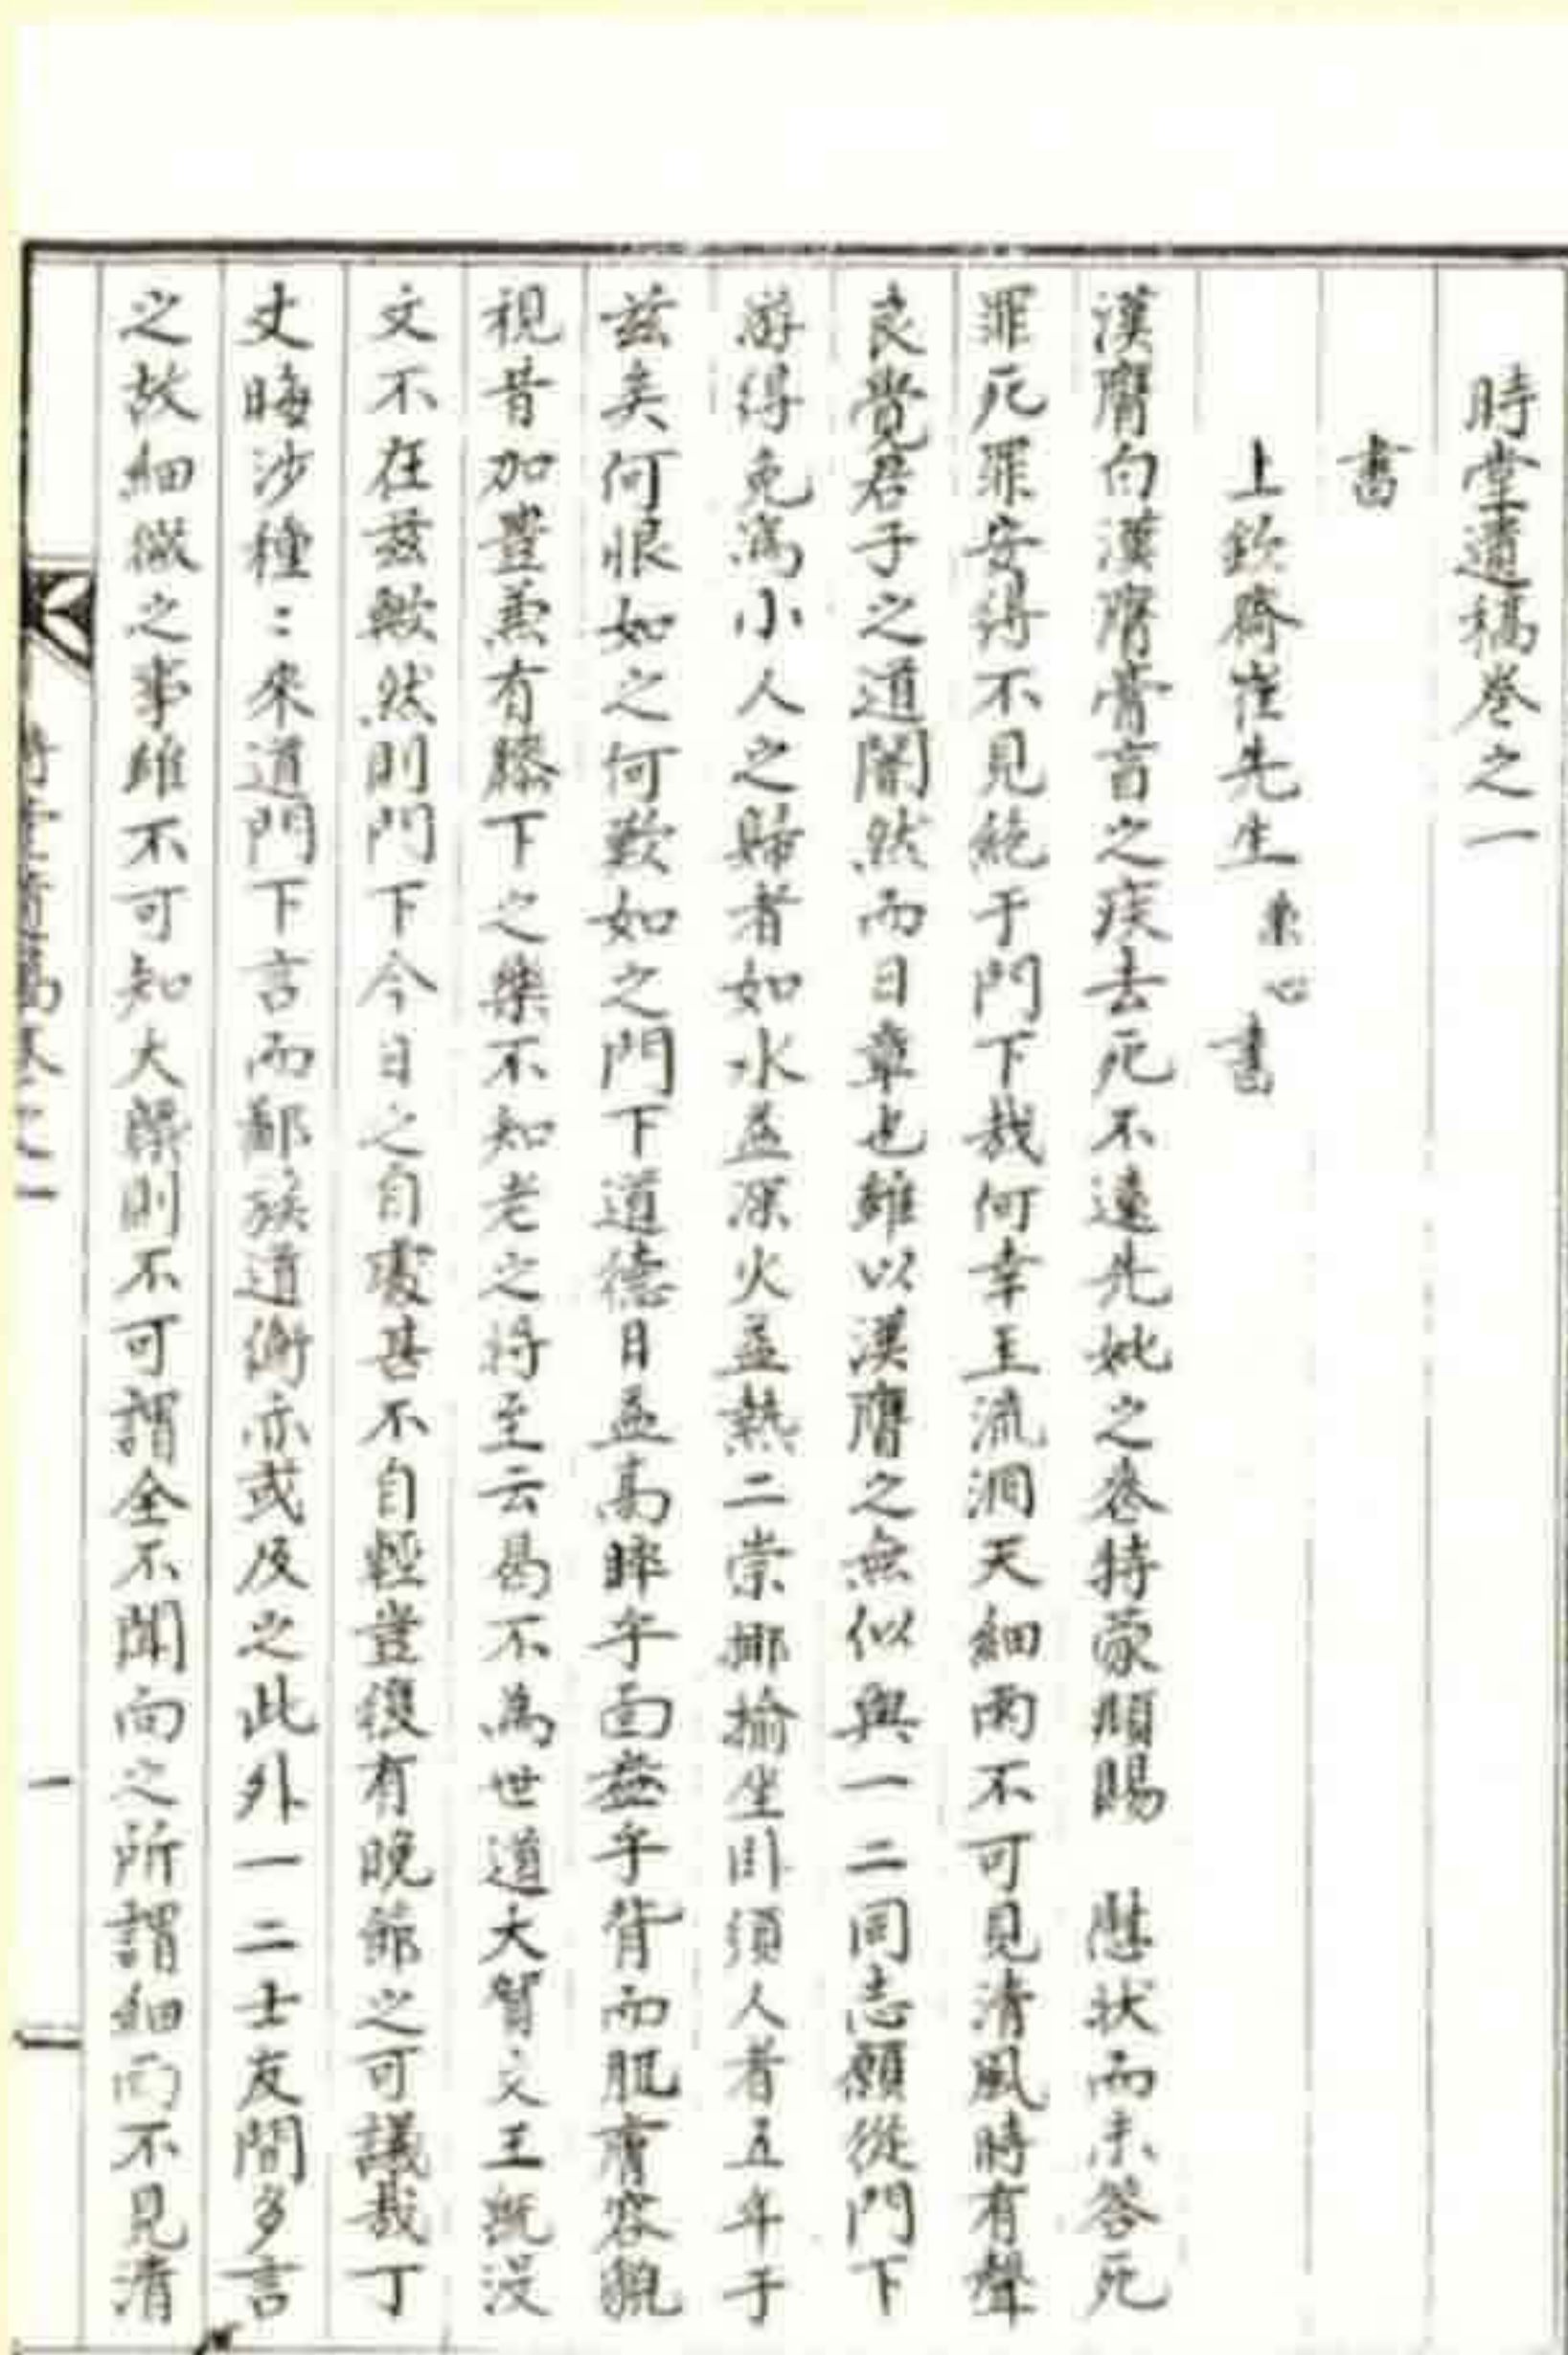 時堂遺稿卷之一
書
上欽齋崔先生秉心書
漢膺白漢膺膏盲之疾去死不遠先妣之喪特蒙頫賜 慰狀而未答死
罪死罪安得不見絶于門下哉何幸王流洞天細雨不可見淸風時有聲
良覺君子之道闇然而日章也雖以漢膺之無似與一二同志願從門下
游得免爲小人之歸者如水益深火益熱二祟揶揄坐卧須人者五年于
兹矣何恨如之何歎如之門下道德日益高睟乎面盎乎背而肌膚容貌
視昔加豊兼有膝下之樂不知老之將至云曷不爲世道大賀文王旣沒
文不在兹歟然則門下今日之自處甚不自輕豈復有晩節之可議哉丁
丈晦沙種〻來道門下言而鄙族道衡亦或及之此外一二士友間多言
之故細微之事雖不可知大槩則不可謂全不聞向之所謂細雨不見淸
一